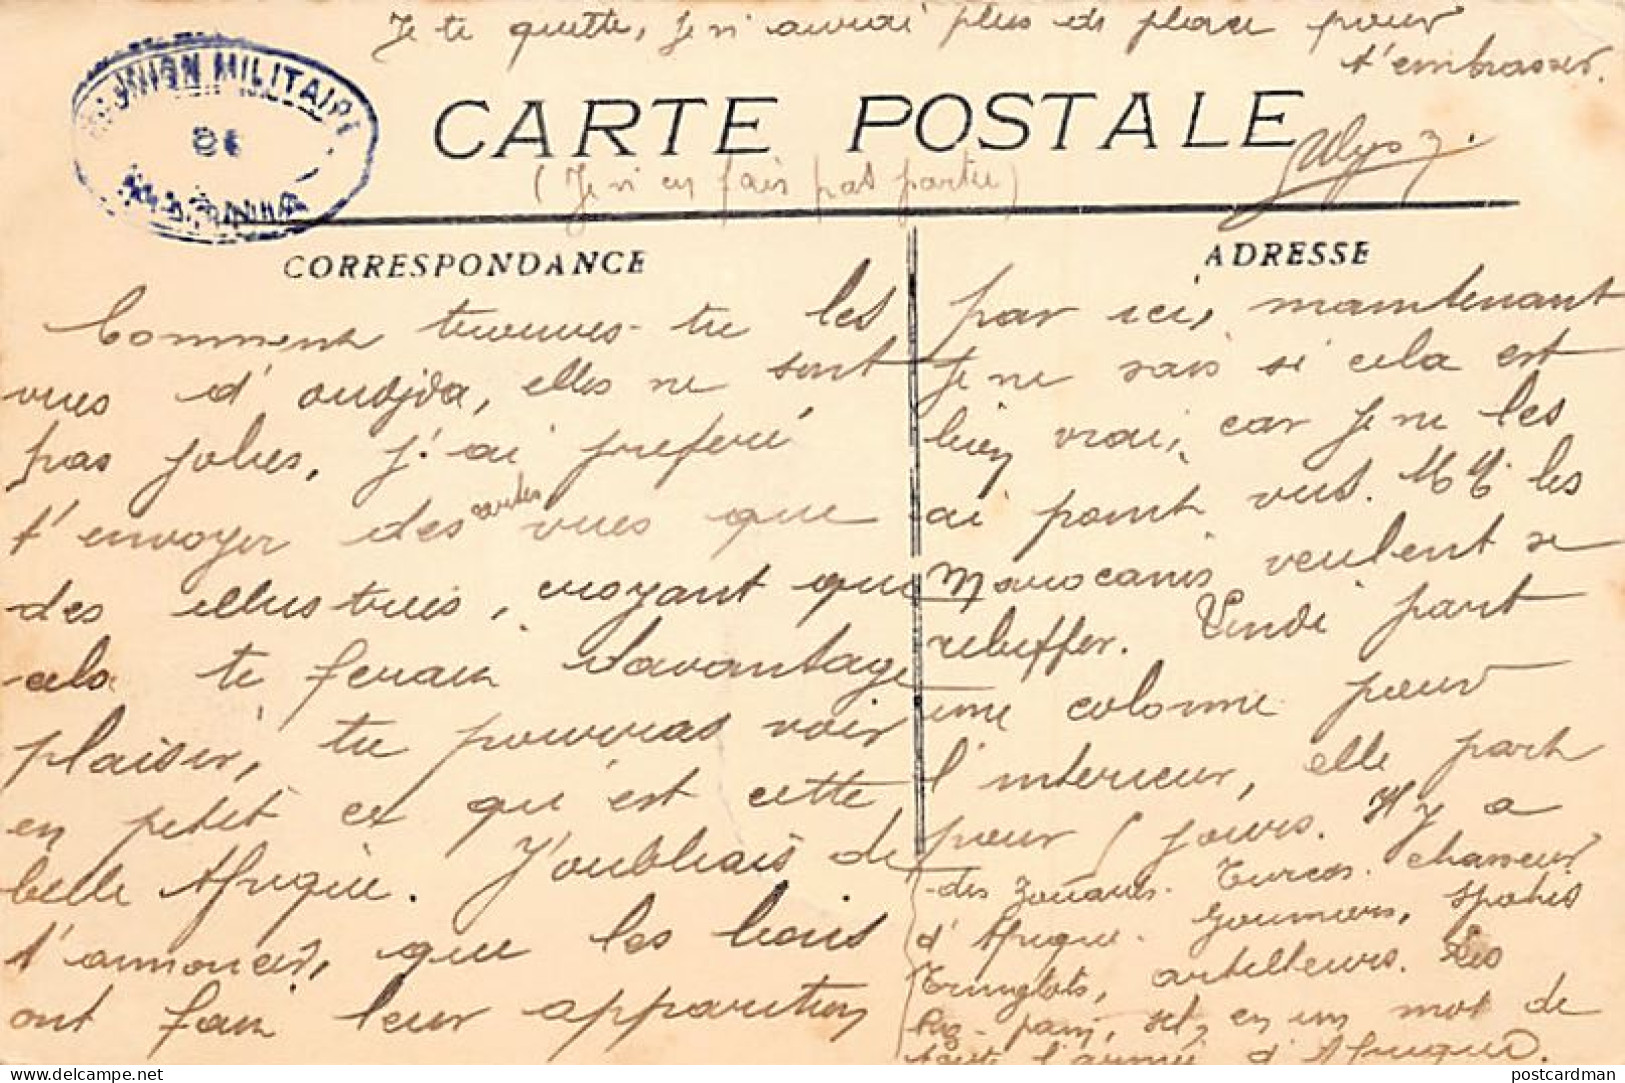 Je te quitte, je n'aurai plus de place pour
t'embrasser.
Ulysse.
UNION MILITAIRE
DE
CARTE POSTALE
(Je n'en fais pas partie)
CORRESPONDANCE
Comment trouves-tu les
vues d'oudjda, elles ne sont
pas jolies, j'ai preferé
t'envoyer des cartes vues que
des illustrées, croyant que
cela te ferait davantage
plaisir, tu pourras voir
en petit ce qu'est cette
belle Afrique. J'oubliais de
t'annoncer, que les
ont fait leur apparition
ADRESSE
par ici, maintenant
je ne sais si cela est
bien vrai, car je ne les
ai point vus. MM. les
Marocains veulent se
rebiffer. part
une colonne pour
l'interieur, elle part
pour jours. Il y a
des Zouaves. Turcos. chasseurs
d'Afrique. Goumiers, spahis
Tringlots, artilleurs. Les
en un mot de
toute l'armée d'Afrique.
postcardman